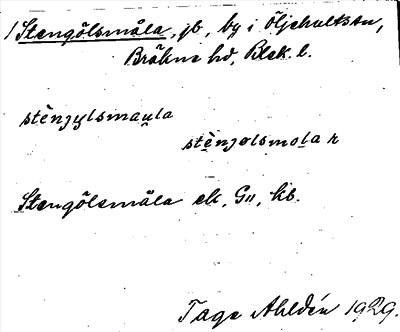 1/ Stengölsmåla, jb, by i Öljehults sn,
Bräkne hd, Blek. l.
stènjylsmau̯la
stènjolsmola r
Stengölsmåla ek, G11, kb.
Tage Ahldén 1929.